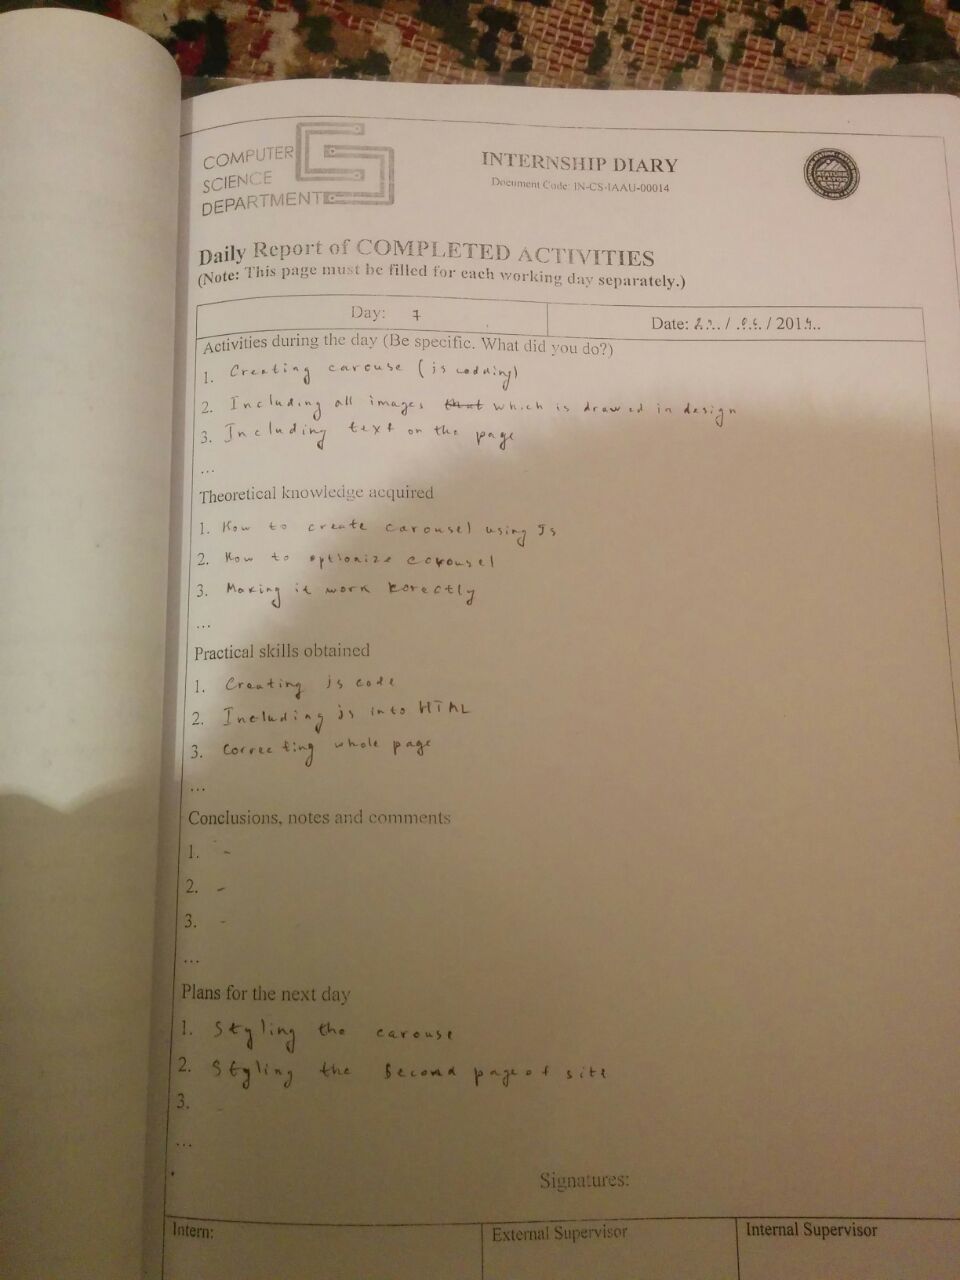 COMPUTER
SCIENCE
DEPARTMENT
INTERNSHIP DIARY
Document Code: IN-CS-IAAU-00014
Daily Report of COMPLETED ACTIVITIES
(Note: This page must be filled for each working day separately.)
Day: 7
Date: / / 201
Activities during the day (Be specific. What did you do?)
1. Creating carouse (js codding)
2. Including all images that which is drawed in design
3. Including text on the page
...
Theoretical knowledge acquired
1. How to create carousel using Js
2. How to carousel
3. Making it work korectly
...
Practical skills obtained
1. Creating js code
2. Including js into HTML
3. Correcting whole page
...
Conclusions, notes and comments
1. -
2. -
3. -
...
Plans for the next day
1. Styling the carouse
2. Styling the Second page of site
3.
...
Signatures:
Intern:
External Supervisor
Internal Supervisor